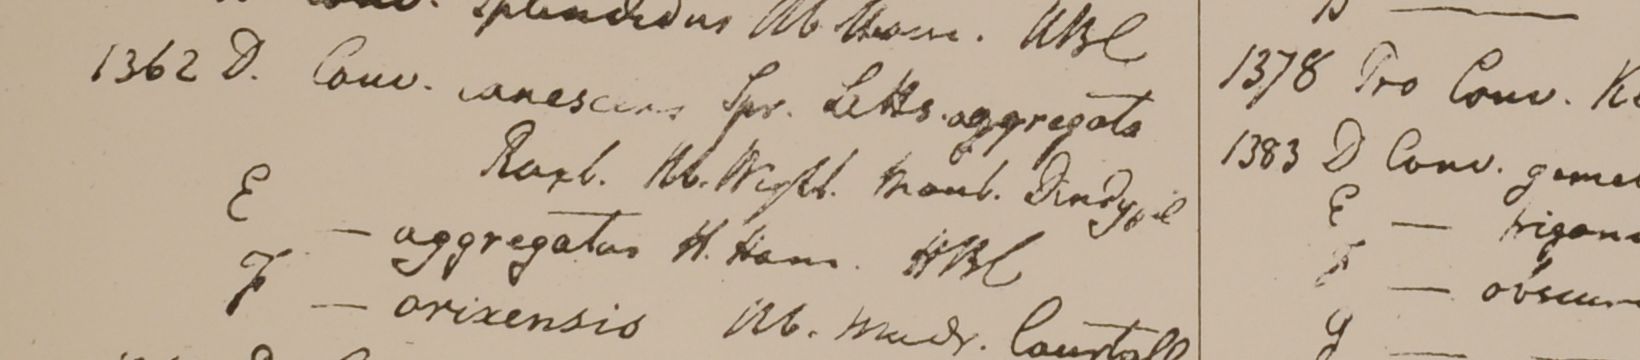 Conv. splendidus Hb Ham. HBC
1362 D. Conv. canescens Spr. Letts. aggregata
Roxb. Hb. Wight. Mont. Dindygul
E — aggregatus H. Ham. HBC
F — orixensis Hb. Madr. Courtall
B —
1378 Pro Conv.
1383 D Conv. geme
E — trigon
F — obscur
g —